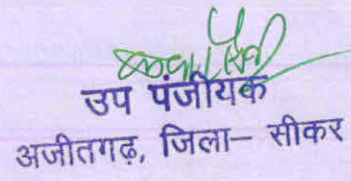 उप पंजीयक
अजीतगढ़, जिला– सीकर